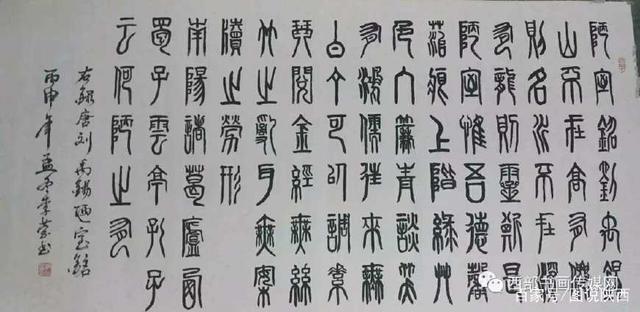 陋室銘劉禹錫
山不在高有僊
則名水不在深
有龍則靈斯是
陋室惟吾德馨
苔痕上階綠艸
色入簾青談笑
有鴻儒往來無
白丁可以調素
琴閱金經無絲
竹之亂耳無案
牘之勞形
南陽諸葛廬西
蜀子雲亭孔子
云何陋之有
右錄唐刘禹錫陋室銘
丙申年孟冬书
西部书画传媒网
百家号/图说陕西